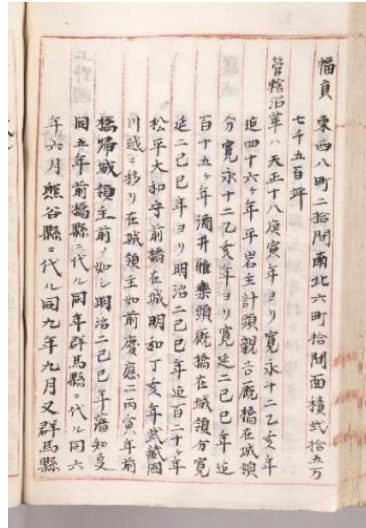 幅員 東西八町二拾間南北六町拾間面積弐拾五万
七千五百坪
管轄沿革ハ天正十八庚寅年ヨリ寛永十二乙亥年
迄四十六ヶ年平岩主計頭親吉厩橋在城領
分寛永十二乙亥年ヨリ寛延二己巳年迄
百十五ヶ年酒井雅楽頭厩橋在城領分寛
延二己巳年ヨリ明治二己巳年迄百二十ヶ年
松平大和守前橋在城明和丁亥年武蔵国
川越ニ移リ在城領主如前慶應二丙寅年前
橋帰城領主前ノ如シ明治二己巳年藩知事
同五年前橋縣ニ代ル同年群馬縣ニ代ル同六
年六月熊谷縣ニ代ル同九年九月又群馬縣